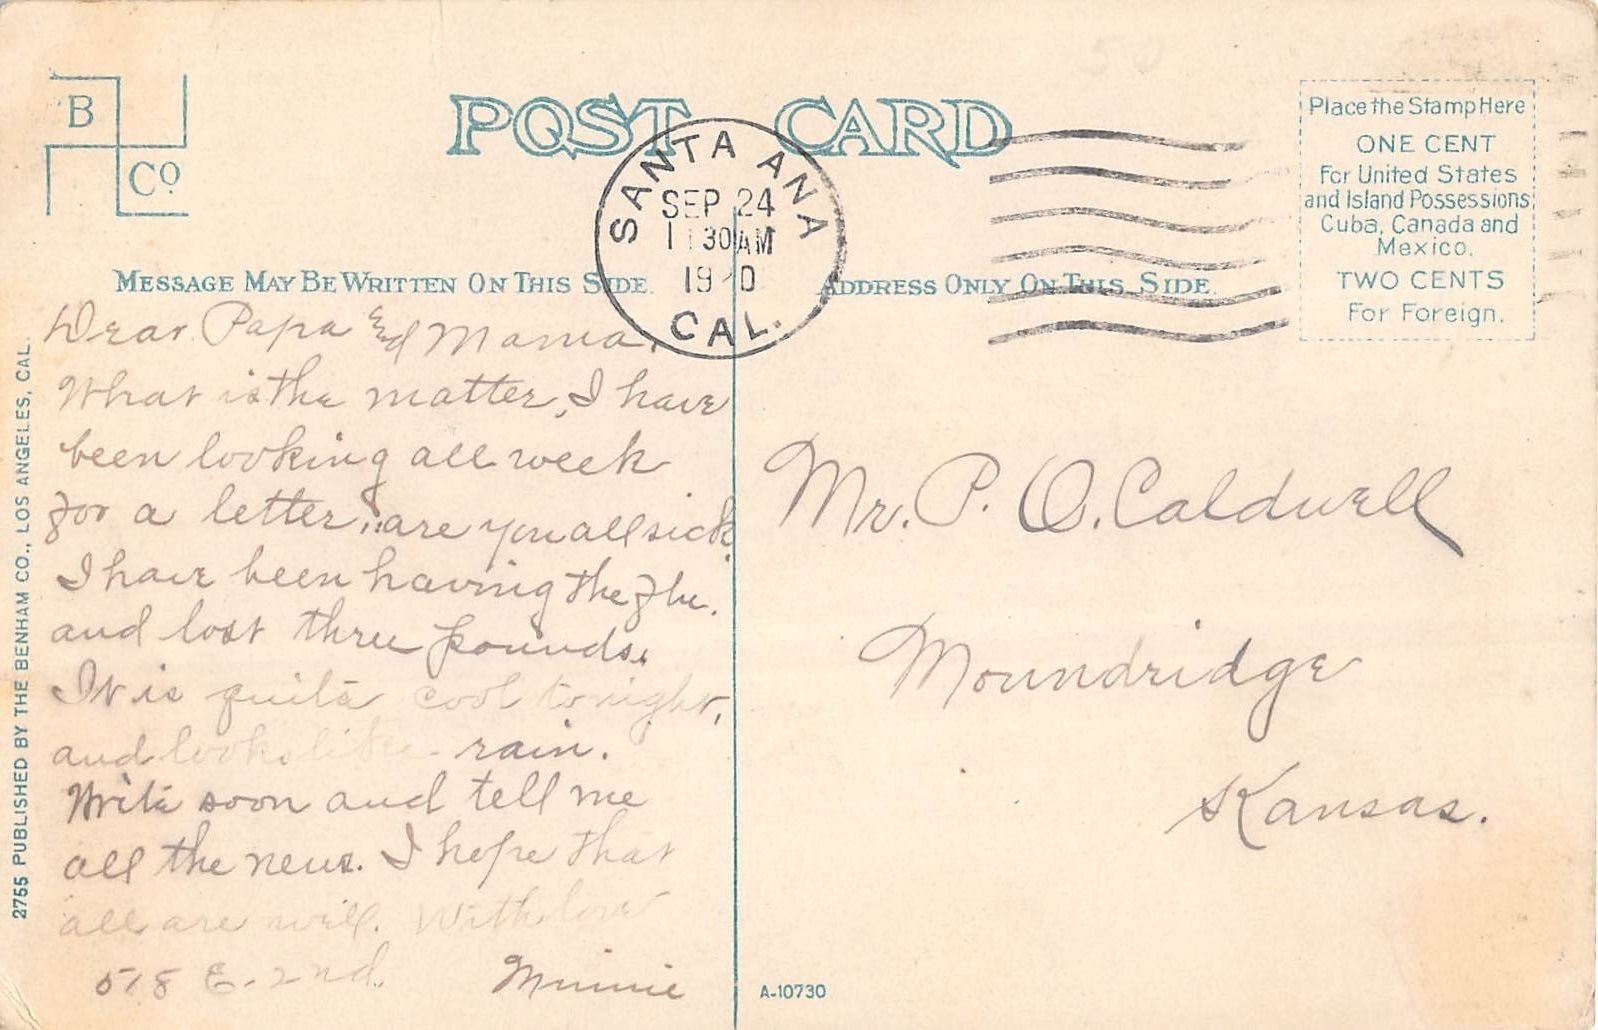 B
Co.
POST CARD
SANTA ANA
SEP 24
11 30 AM
CAL.
Place the Stamp Here
ONE CENT
For United States
and Island Possessions,
Cuba, Canada and
Mexico.
TWO CENTS
For Foreign.
MESSAGE MAY BE WRITTEN ON THIS SIDE
ADDRESS ONLY ON THIS SIDE
Dear Papa & Mama.
What is the matter, I have
been looking all week
for a letter, are you all sick.
I have been having the flu.
and lost three pounds.
It is quite cool tonight,
and looks like rain.
Write soon and tell me
all the news. I hope that
all are well. With love
518 E. 2nd. Minnie
Mr. P. O. Caldwell
Moundridge
Kansas.
2755 PUBLISHED BY THE BENHAM CO., LOS ANGELES, CAL.
A-10730